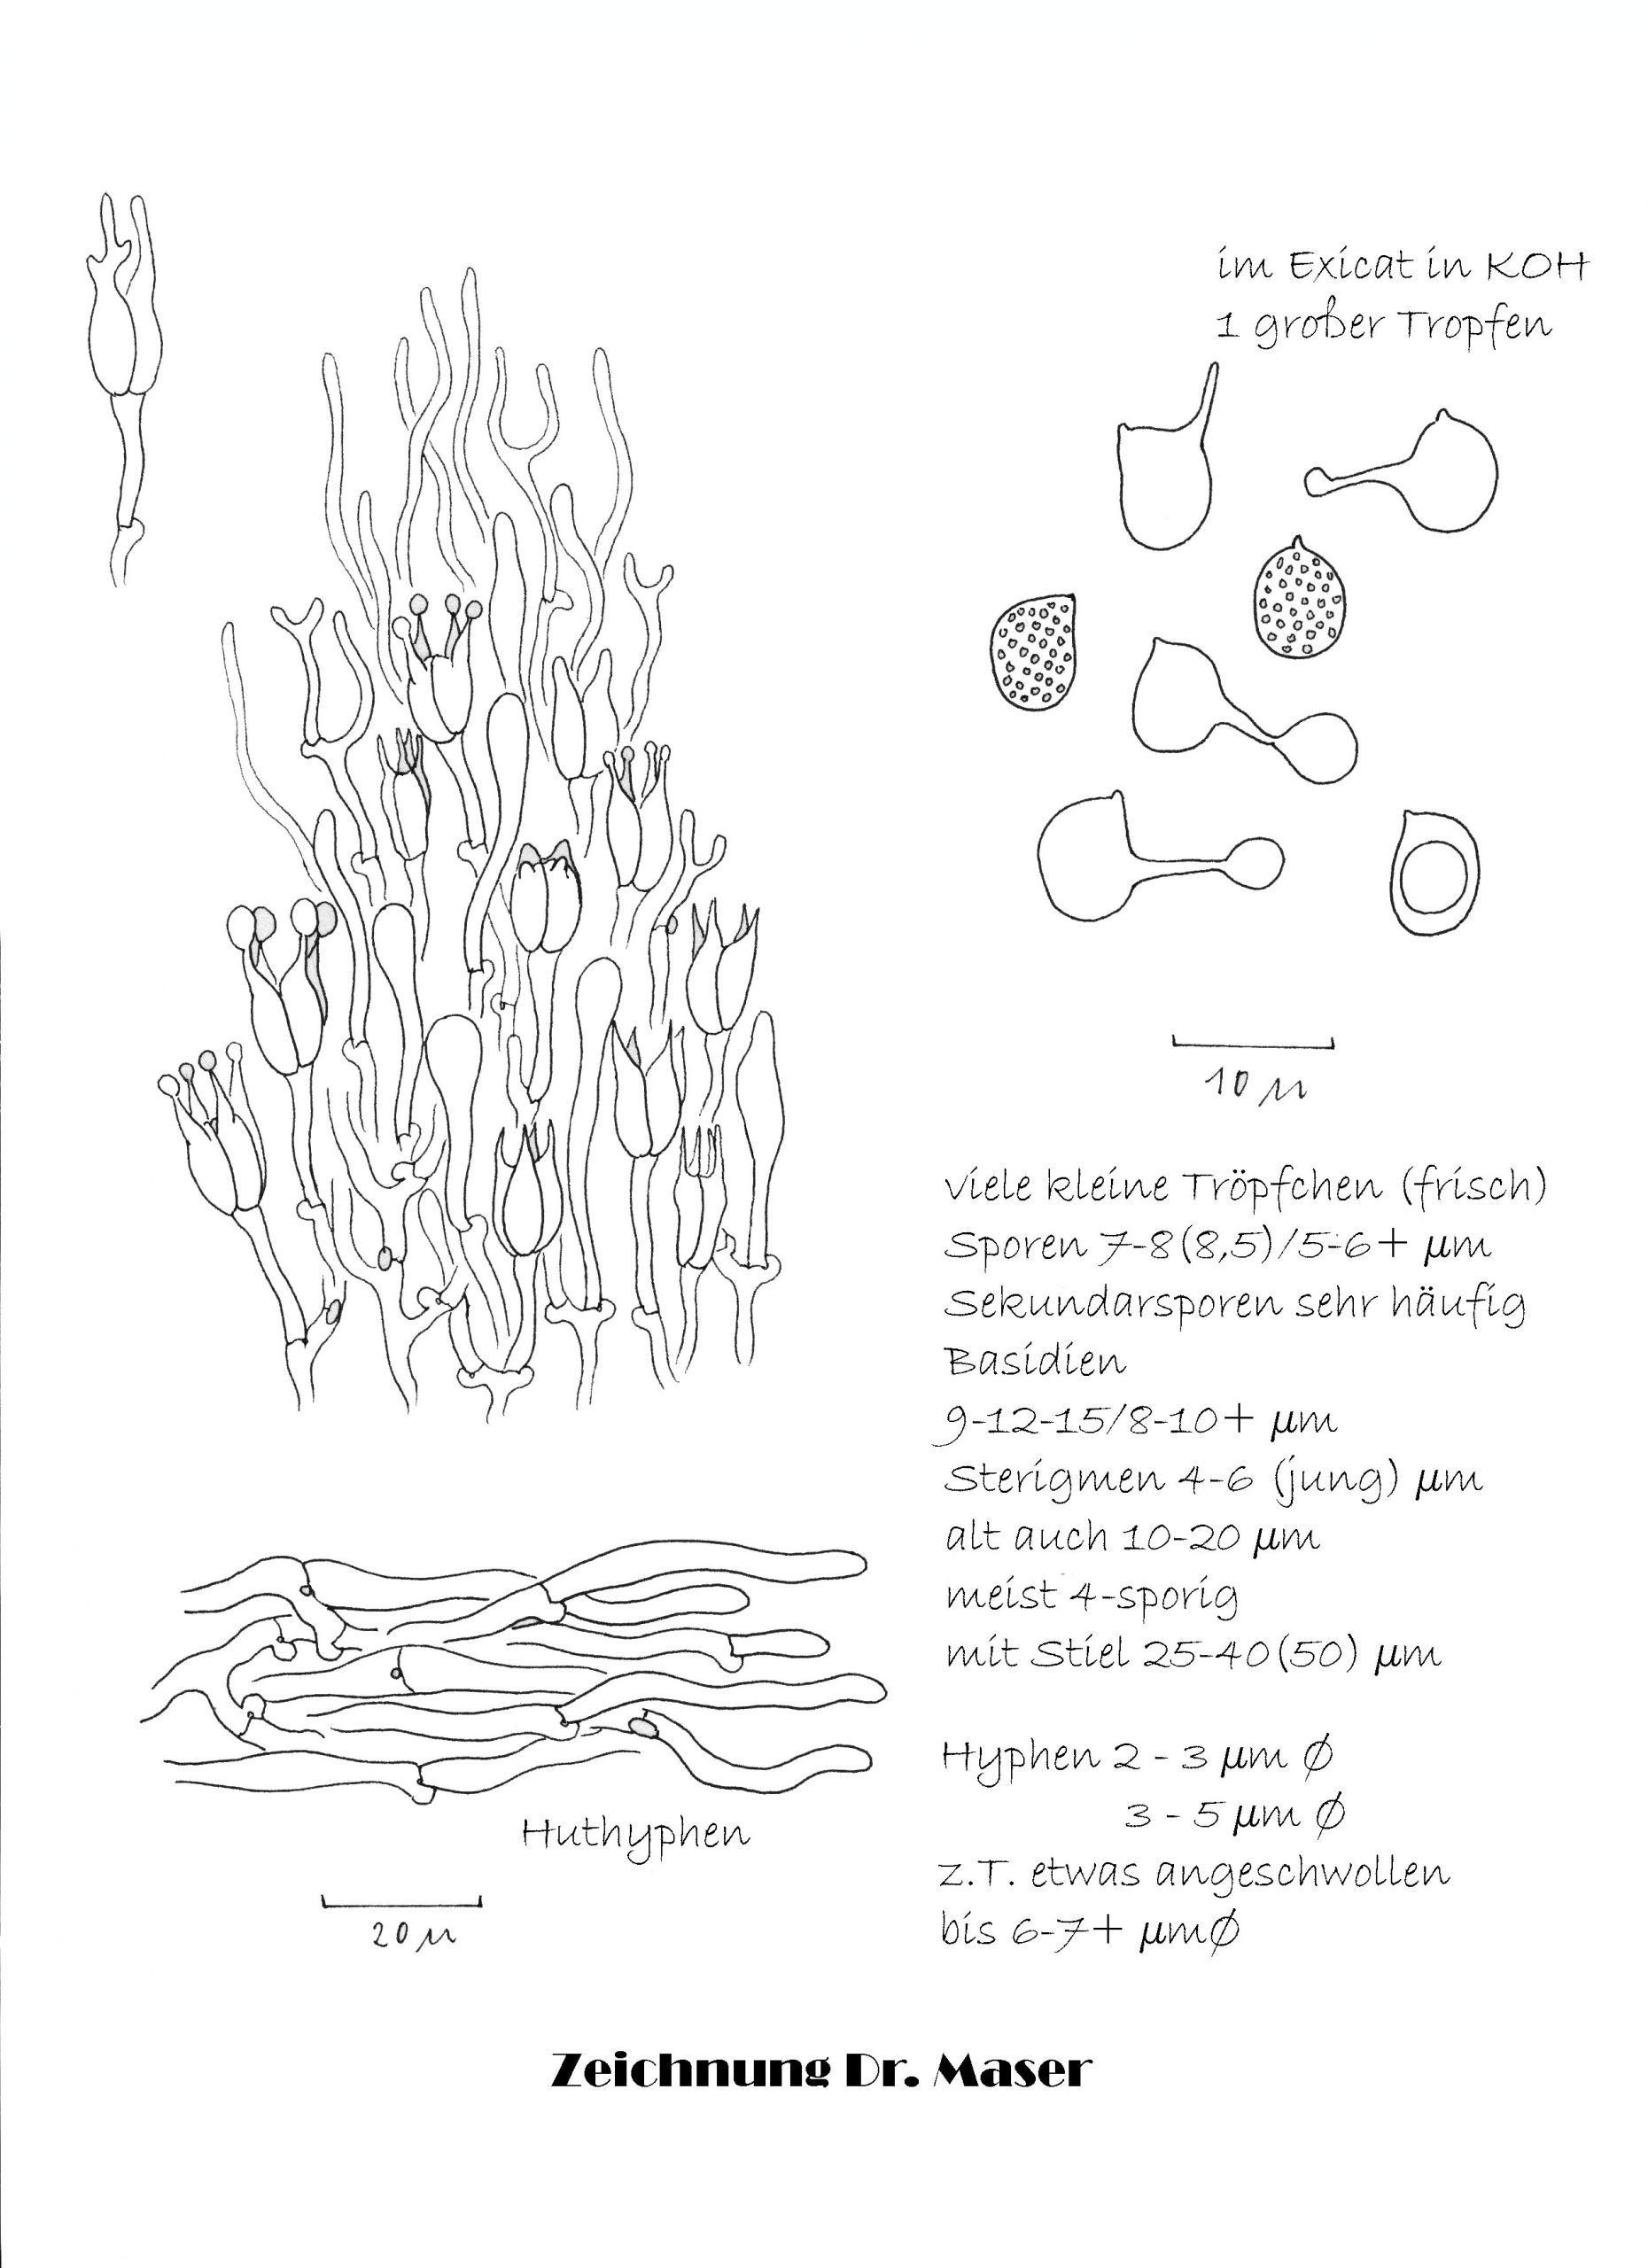 im Exicat in KOH
1 großer Tropfen
10 µ
viele kleine Tröpfchen (frisch)
Sporen 7-8(8,5)/5-6+ µm
Sekundarsporen sehr häufig
Basidien
9-12-15/8-10+ µm
Sterigmen 4-6 (jung) µm
alt auch 10-20 µm
meist 4-sporig
mit Stiel 25-40(50) µm
Hyphen 2 - 3 µm Ø
3 - 5 µm Ø
z.T. etwas angeschwollen
bis 6-7+ µmØ
Huthyphen
20 µ
Zeichnung Dr. Maser